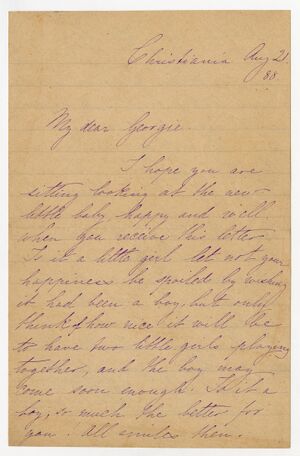 Christiania Aug 21
88.
My dear Georgie.
I hope you are
sitting looking at the new
little baby happy and well
when you receive this letter
Is it a little girl let not your
happiness be spoiled by wishing
it had been a boy, but only
think of how nice it will be
to have two little girls playing
together, and the boy may
come soon enough. Is it a
boy, so much the better for
you! All smiles then.